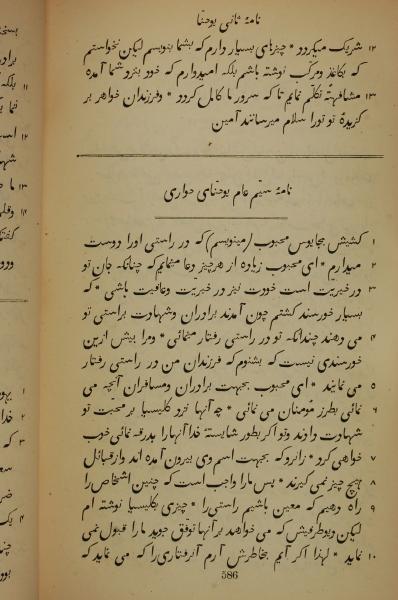 نامهٔ ثانی یوحنّا
۱۲ شریک میکردد * چیزهای بسیار دارم که بشما بنویسم لیکن نخواستم
که بکاغذ و مرکّب نوشته باشم بلکه امیدوارم که خود بنزد شما آمده
۱۳ مشافهتهً تکلّم نمایم تا که سرور ما کامل کردد * و فرزندان خواهر بر
کزیدهٔ تو تورا سلام میرسانند آمین
نامهٔ سیّم عام یوحنّای حواری
۱ کشیش بجایوس محبوب (مینویسم) که در راستی اورا دوست
۲ میدارم * ای محبوب زیاده از هر چیز دعا مینمایم که چنانکه جان تو
۳ در خیریت است خودت نیز در خیریت و عافیت باشی * که
بسیار خورسند کشتم چون آمدند برادران و شهادت براستی تو
۴ می دهند چندانکه تو در راستی رفتار مینمائی * و مرا بیش ازین
خورسندی نیست که بشنوم که فرزندان من در راستی رفتار
۵ می نمایند * ای محبوب بجهت برادران و مسافران آنچه می
۶ نمائی بطرز مؤمنان می نمائی * چه آنها نزد کلیسیا بر محبّت تو
شهادت دادند و تو اکر بطور شایستهٔ خدا آنها را بدرقه نمائی خوب
۷ خواهی کرد * زانرو که بجهت اسم وی بیرون آمده اند و از قبائل
۸ هیچ چیز نمی کیرند * پس ما را واجب است که چنین اشخاص را
۹ راه دهیم که معین باشیم راستی را * چیزی بکلیسیا نوشته ام
لیکن دیوطرفیس که می خواهد بر آنها تفوّق جوید ما را قبول نمی
۱۰ نماید * لهذا اکر آیم بخاطرش آرم آن رفتاری را که می نماید که
586